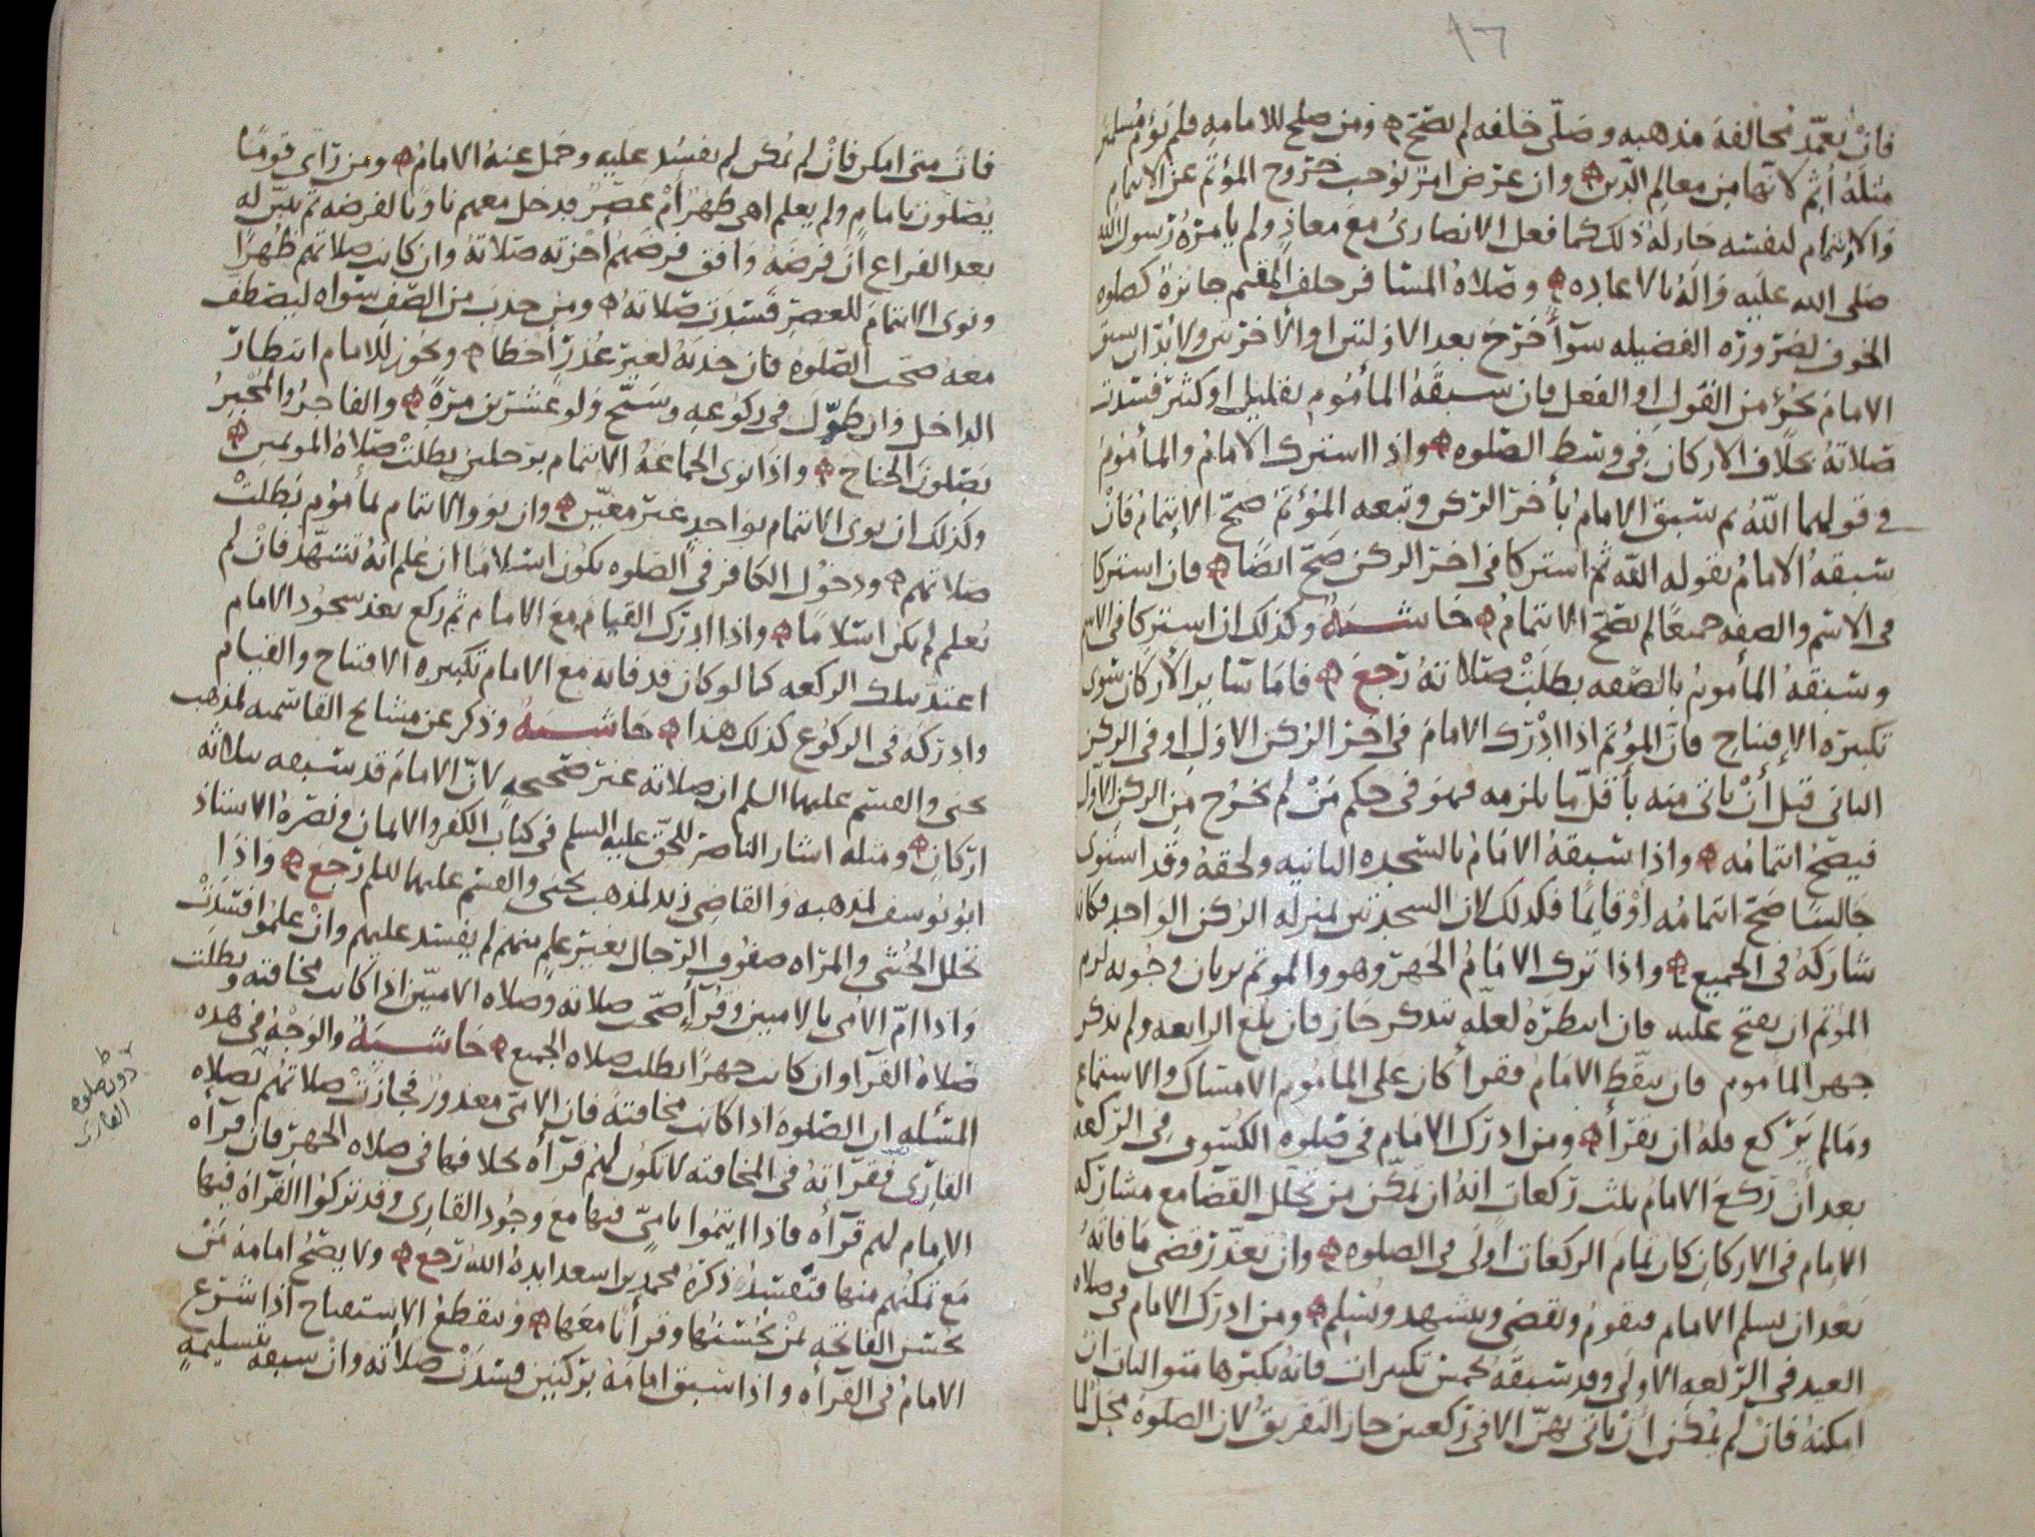 ٨٦
فان تعمد مخالفة مذهبه وصلى خلفه لم تصح ومن صلح للامامه فلم يؤم مسلما
مثله أثم لانها من معالم الدين وان عرض امر يوجب خروج المؤتم عن الائتمام
والائتمام لنفسه جاز له ذلك كما فعل الانصارى مع معاذ ولم يامره رسول الله
صلى الله عليه واله بالاعاده وصلاة المسافر خلف المقيم جائزة كصلوه
الخوف لضرورة الفضيله سوآ خرج بعد الاولتين او الاخرتين ولا بد ان يسبق
الامام بجزؤ من القول او الفعل فان سبقه المأموم بقليل او كثير فسدت
صلاته بخلاف الاركان في وسط الصلوه واذا اشترك الامام والمأموم
في قولهما الله ثم سبق الامام بأخر الركن وتبعه المؤتم صح الائتمام فان
سبقه الامام بقوله الله ثم اشتركا في اخر الركن صح ايضا فان اشتركا
في الاسم والصفه جميعا لم تصح الائتمام حاشية وكذلك ان اشتركا في الاسم
وسبقه المأموم بالصفه بطلت صلاته رجع فاما سائر الأركان سوى
تكبيرة الإفتتاح فان المؤتم اذا ادرك الامام في اخر الركن الاول او في الركن
الثاني قبل أن ياتي منه بأقل ما يلزمه فهو في حكم من لم يخرج من الركن الأول
فيصح ائتمامه واذا سبقه الامام بالسجده الثانيه ولحقه وقد استوى
جالسا صح ائتمامه أو قائما فكذلك لان السجدتين بمنزله الركن الواحد فكانه
شاركه في الجميع واذا ترك الامام الجهر وهو والموتم يريان وجوبه لزم
المؤتم ان يفتح عليه فان انتظره لعله يتذكر جاز فان بلغ الرابعه ولم يذكر
جهر المأموم فان تيقظ الامام فقرأ كان على المأموم الامساك والاستماع
ومالم يركع فله ان يقرأ ومن ادرك الامام في صلوه الكسوف في الركعه
بعد أن ركع الامام ثلث ركعات انه ان تمكن من تخلل القضا مع مشاركه
الامام في الاركان كان تمام الركعات اولى في الصلوه وان تعذر قضى ما فاته
بعد ان يسلم الامام فيقوم ويقضى ويتشهد ويسلم ومن ادرك الامام في صلاه
العيد في الركعه الاولى وقد سبقه بخمس تكبيرات فانه يكبرها متواليات ان
امكنه فان لم يمكن أن ياتي بهن الا في ركعتين جاز التفريق لان الصلوة محل لما
فات متى امكن فان لم يمكن لم يفسد عليه وحمل عنه الامام ومن رآى قوما
يصلون بامام ولم يعلم اهى ظهر أم عصر فدخل معهم ناويا لفرضه ثم تبين له
بعد الفراغ ان فرضه وافق فرضهم اجزته صلاته وان كانت صلاتهم ظهرا
ونوى الائتمام للعصر فسدت صلاته ومن جذب من الصف سواه ليصطف
معه صحت الصلوه فان جذبه لغير عذر أخطا ويجوز للامام انتظار
الداخل وان طول في ركوعه وسبح ولو عشرين مرة والفاجر والمجبر
يصلون الجناح واذا نوى الجماعة الائتمام برجلين بطلت صلاة المؤتمين
وكذلك ان نوى الائتمام بواحد غير معين وان نووا الائتمام لمأموم بطلت
صلاتهم ودخول الكافر في الصلوه يكون اسلاما ان علم انه تشهد فان لم
يعلم لم يكن اسلاما واذا ادرك القيام مع الامام ثم ركع بعد سجود الامام
اعتد بتلك الركعه كما لو كان قد فاته مع الامام تكبيره الافتتاح والقيام
وادركه في الركوع كذلك هذا حاشية وذكر عن مشايخ القاسميه لمذهب
يحيى والقسم عليهما السلم ان صلاته غير صحيحه لان الامام قد سبقه بثلاثه
اركان ومثله اشار الناصر للحق عليه السلم في كتاب الكفر والايمان ونصره الاستاذ
ابو يوسف لمذهبه والقاضى زيد لمذهب يحيى والقسم عليهما السلم رجع واذا
تخلل الخنثى والمراه صفوف الرجال بغير علم منهم لم يفسد عليهم وان علموا فسدت
واذا ام الأمى بالاميين وقرآ صحت صلاته وصلاه الاميين اذا كانت مخافته وبطلت
صلاة القرآ وان كانت جهرا بطلت صلاه الجميع حاشية والوجه في هذه
المسئله ان الصلوة اذا كانت مخافتة فان الامى معذور فجازت صلاتهم بصلاه
القارى فقراته في المخافته لا تكون لهم قرآه بخلافها في صلاه الجهر فان قرآه
الإمام لهم قرآه فاذا ايتموا بامى فيها مع وجود القارى وقد تركوا القرآة فيها
مع تمكنهم منها فتفسد ذكره محمد بن اسعد ايده الله رجع ولا يصح امامة من
يحسن الفاتحه لمن يحسنها وقرأنا معها ويقطع الاستفتاح اذا شرع
الامام في القرآه واذا سبق امامه بركنين فسدت صلاته وان سبقه بتسليمه
ظ
دون صلوه
القارى